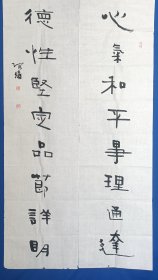 心氣和平事理通達
德性堅定品節詳明